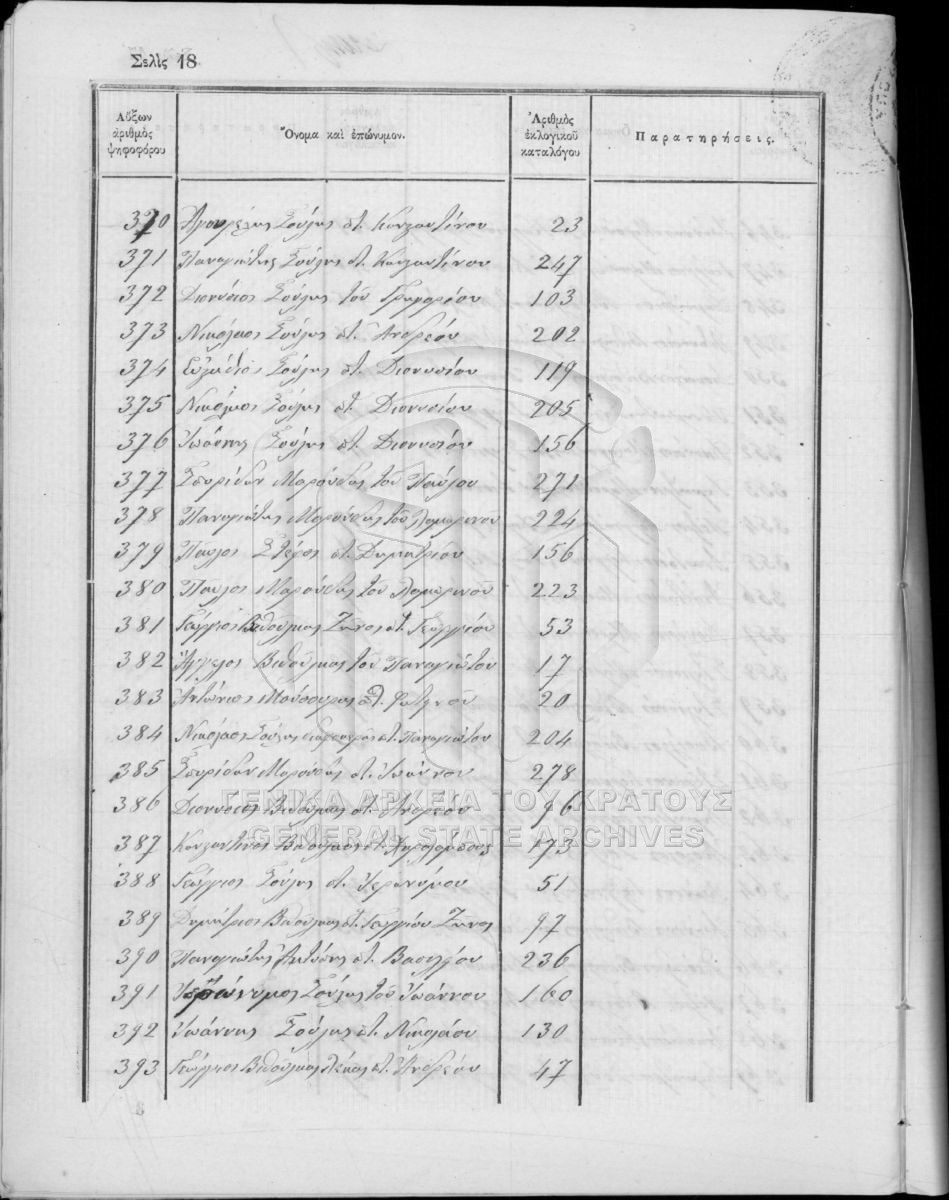 Σελὶς 18
Αὔξων ἀριθμὸς ψηφοφόρου
Ὄνομα καὶ ἐπώνυμον.
Ἀριθμὸς ἐκλογικοῦ καταλόγου
Παρατηρήσεις.
370 Σούλης Κωνσταντίνου 23
371 Παναγιώτης Σούλης Κωνσταντίνου 247
372 Διονύσιος Σούλης τοῦ Γρηγορίου 103
373 Νικόλαος Σούλης Ἀνδρέου 202
374 Σούλης Διονυσίου 119
375 Νικόλαος Σούλης Διονυσίου 205
376 Ἰωάννης Σούλης Διονυσίου 156
377 Σπυρίδων Μαρούδας τοῦ Παύλου 271
378 Παναγιώτης Μαρούδας τοῦ 224
379 Παῦλος Δημητρίου 156
380 Παῦλος Μαρούδας τοῦ 223
381 Γεώργιος Βιτούλμας Ζῶνος Γεωργίου 53
382 Ἄγγελος Βιτούλμας τοῦ Παναγιώτου 17
383 Ἀντώνιος Μούσουρας 20
384 Νικόλαος Σούλης Παναγιώτου 204
385 Σπυρίδων Μαρούδας Ἰωάννου 278
386 Διονύσιος Βιτούλμας Ἀνδρέου 96
387 Κωνσταντῖνος Βιτούλμας 173
388 Γεώργιος Σούλης Ἱερωνύμου 51
389 Δημήτριος Βιτούλμας Γεωργίου Ζῶνος 97
390 Παναγιώτης Βασιλείου 236
391 Ἱερώνυμος Σούλης τοῦ Ἰωάννου 160
392 Ἰωάννης Σούλης Νικολάου 130
393 Γεώργιος Βιτούλμας Ἀνδρέου 47
ΓΕΝΙΚΑ ΑΡΧΕΙΑ ΤΟΥ ΚΡΑΤΟΥΣ
GENERAL STATE ARCHIVES